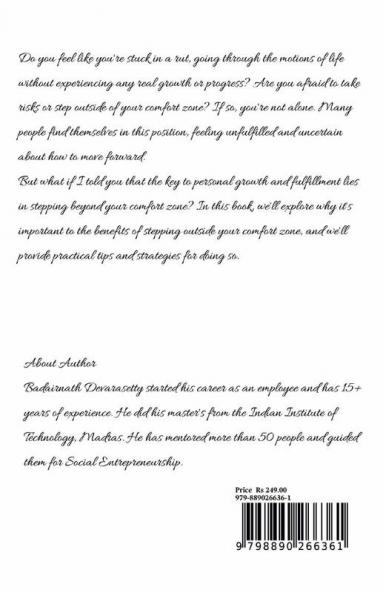 Do you feel like you're stuck in a rut, going through the motions of life
without experiencing any real growth or progress? Are you afraid to take
risks or step outside of your comfort zone? If so, you're not alone. Many
people find themselves in this position, feeling unfulfilled and uncertain
about how to move forward.
But what if I told you that the key to personal growth and fulfillment lies
in stepping beyond your comfort zone? In this book, we'll explore why it's
important to the benefits of stepping outside your comfort zone, and we'll
provide practical tips and strategies for doing so.
About Author
Badairnath Devarasetty started his career as an employee and has 15+
years of experience. He did his master's from the Indian Institute of
Technology, Madras. He has mentored more than 50 people and guided
them for Social Entrepreneurship.
Price Rs 249.00
979-889026636-1
9 798890 266361